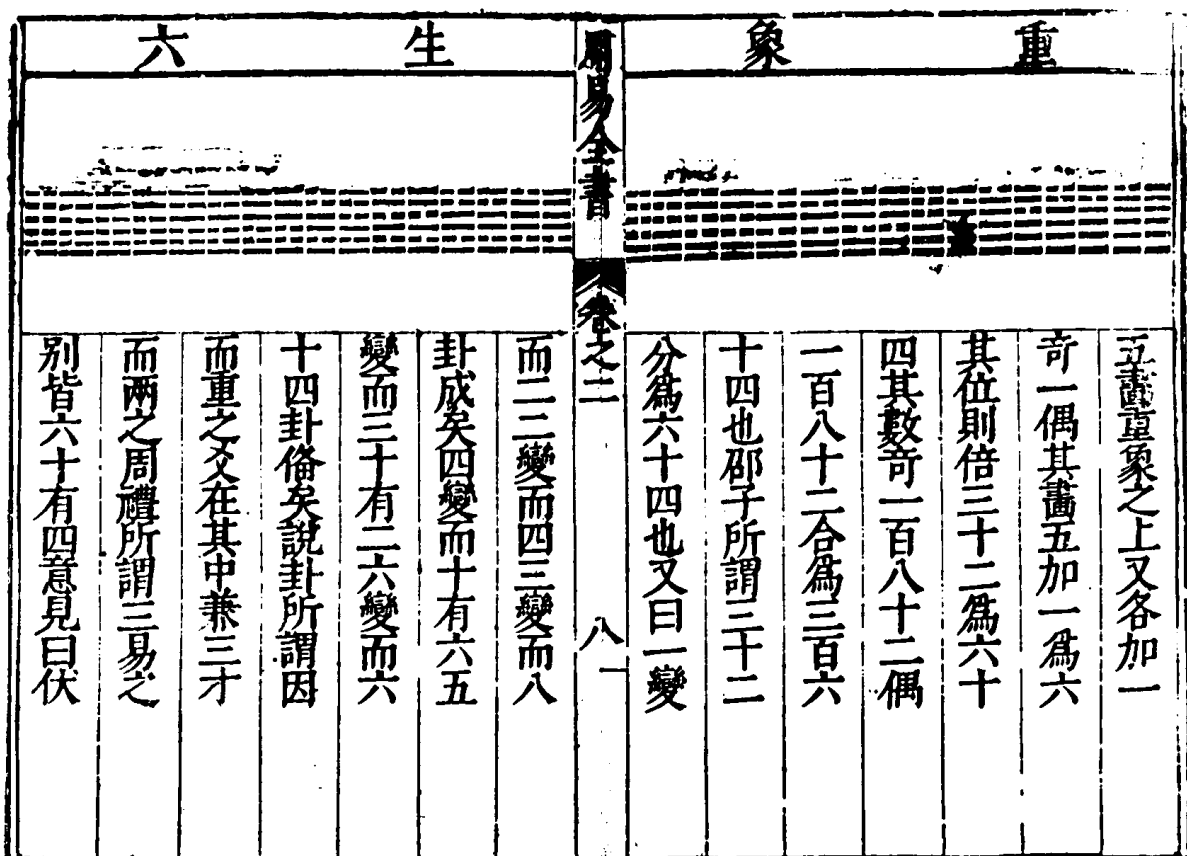 重象
五畫重象之上又各加一
竒一偶其畵五加一爲六
其位則倍三十二爲六十
四其數竒一百八十二偶
一百八十二合爲三百六
十四也邵子所謂三十二
分爲六十四也又曰一變
周易全書
卷之二
八一
生六
而二二變而四三變而八
卦成矣四變而十有六五
變而三十有二六變而六
十四卦偹矣說卦所謂因
而重之爻在其中兼三才
而兩之周禮所謂三易之
别皆六十有四意見曰伏